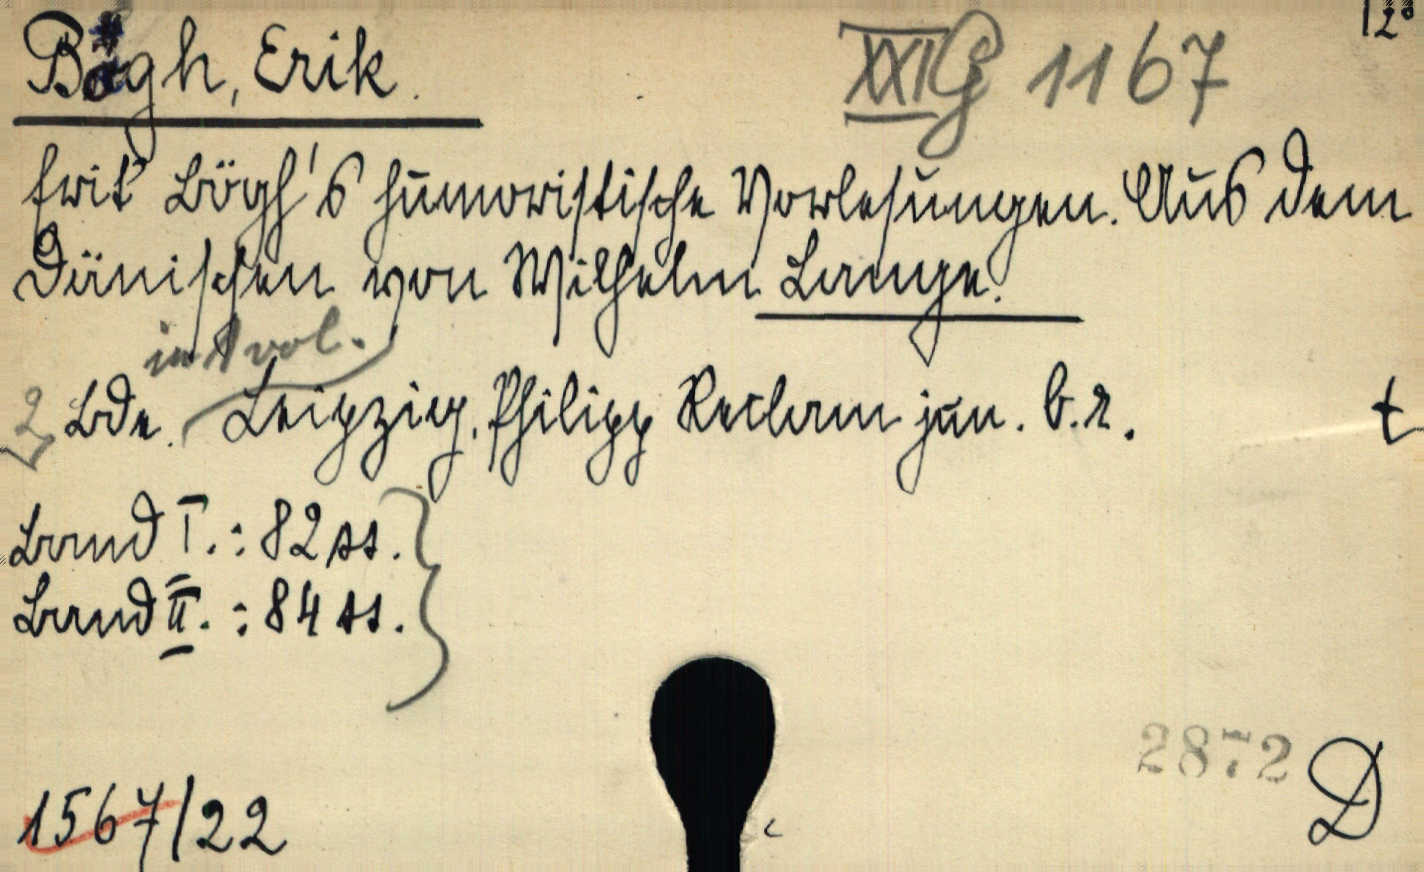 12°
Bögh, Erik.
XXI G 1167
Erik Bögh's humoristische Vorlesungen. Aus dem
Dänischen von Wilhelm Lange.
in 1 vol.
2 Bde. Leipzig, Philipp Reclam jun. b. r.
t
Band I. : 82 ss.
Band II. : 84 ss.
2872
D
1567/22